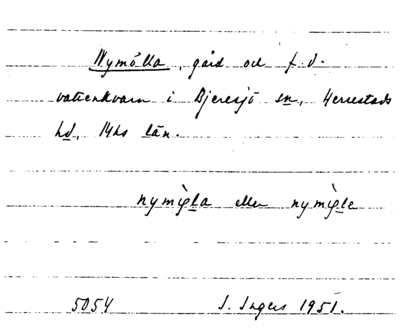 Nymölla, gård och f.d.
vattenkvarn i Bjeresjö sn, Herrestads
hd, Mhs län.
nymı̀gla eller nymı̀gle
5054 I. Ingers 1951.